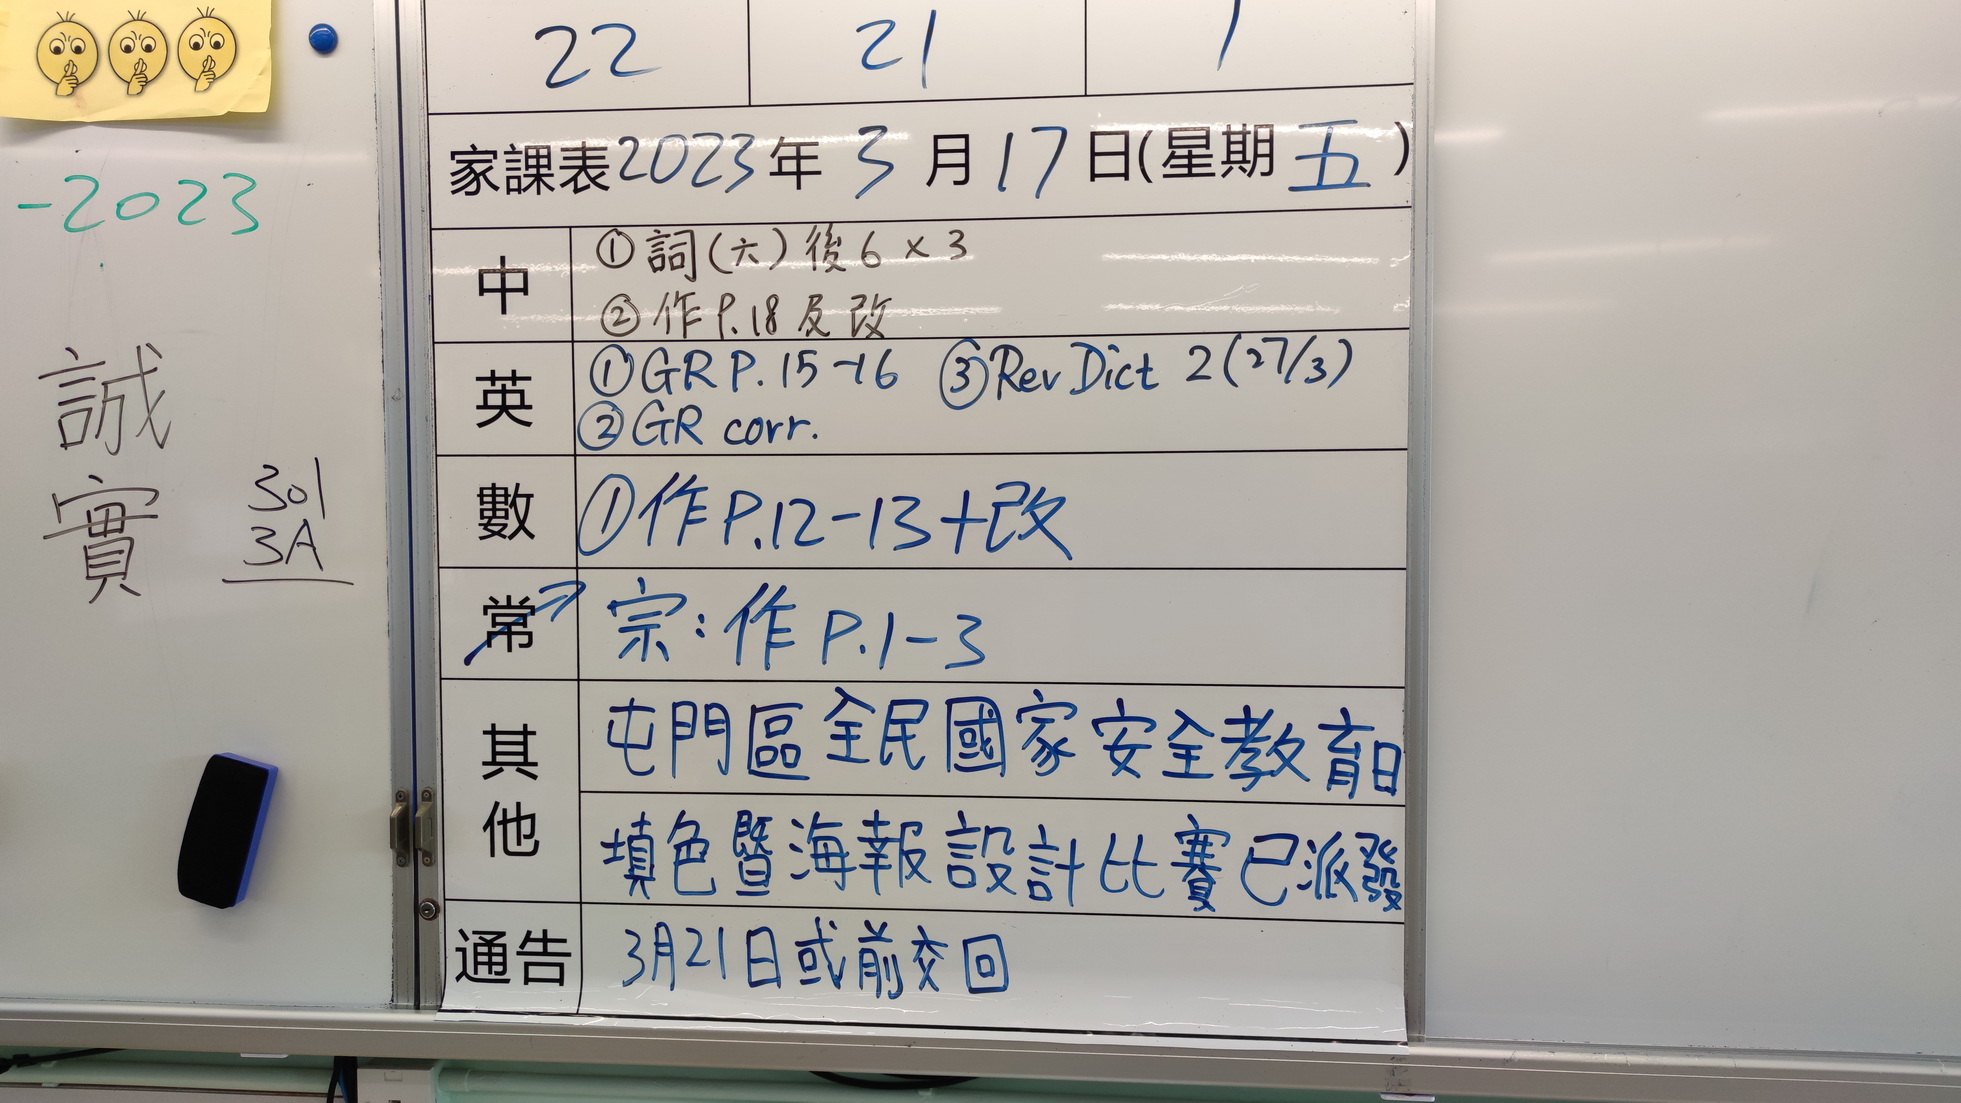 22 21 1
家課表2023年3月17日(星期五)
中
①詞(六)後6×3
②作P.18及改
英
①GR P.15-16 ③Rev Dict 2(27/3)
②GR corr.
數
①作P.12-13+改
常
宗:作P.1-3
其他
屯門區全民國家安全教育日
填色暨海報設計比賽已派發
通告
3月21日或前交回
-2023
誠實
301
3A